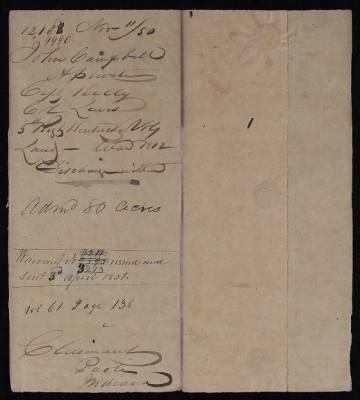 12,188 Nov 11/50
9990
John Campbell
A private
Capt Kelly
Col Lewis
5 Regt Kentucky Vols
Land - War 1812
Discharge within
Admd 80 acres
Warrant No issued and
Sent 3d April 1851.
Vol 61 Page 138
Claimant
Paoli
Indiana
1